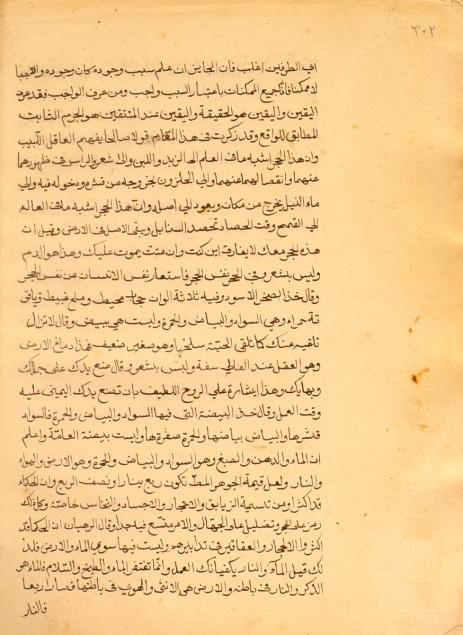 ٣٠٢
اي الطرفين اغلب فان الجايز ان علم سبب وجوده كان وجوده واجبا
لا ممكنا فاذا جميع الممكنات باعتبار السبب واجب ومن عرف الواجب فقد عرف
اليقين واليقين هو الحقيقة واليقين عند هو الجزم الثابت
المطابق للواقع وقد ذكرت في هذا المقام قولا صالحا يفهم العاقل اللبيب
وان هذا الحجر اشبه ما في العلم الزبد واللبن والى شعر الراس في ظهورهما
عنهما وانفصالهما عنهما والى الحلزون لخروجه من قشره ودخوله فيه والى
ماء النيل يخرج من مكان ويعود الى اصله وان هذا الحجر اشبه ما في العالم
الى القمح وقت الحصاد تحصد السنابل ويبقى الاصل في الارض وقيل ان
هذه الحجر معك لا يفارقك اين كنت وان متت يموت عليك وهذا هو الدم
وليس بشعر وفي الحجر نفس الحجر فاستعار نفس الانسان عن نفس الحجر
وقال خذ الصخر الاسود وفيه ثلاثة الوان محيط وملح غبيط
حمراء وهي السواد والبياض والحمرة وليست هي ببيض وقال لا تزال
تلقيه عنك كما تلقي الحية سلخها وهو صغير ضعيف فهذا دماغ الارض
وهو العقل عند العالي سفة وليس بشعر وقال ضع يدك على جمالك
وبهايك وهذا ايشارة على الروح اللطيف بان تضع يدك اليمنى عليه
وقت العمل وقال خذ البيضة التي فيها السواد والبياض والحمرة فالسواد
قشرها والبياض بياضها والحمرة صفرتها وليست بيضة العامة واعلم
ان الماء والدهن والصبغ وهو السواد والبياض والحمرة وهو الارض والهواء
والنار ولعل قيمة الجوهر تكون ربع دينار ونصف الربع وان الحكماء
قد اكثروا من تسمية الزيابق والاحجار والاجساد والنحاس خاصة وكل ذلك
رمز على الحجر وتضليل على الجهال والامر متسع فيه جدا وقال الرهبان ان الحكماء قد
اكثروا الاحجار والعقاقير في تدابيرهم وليست فيها سوى الماء والارض فلذلك
قيل الماء والنار يكفيانك العمل وانما تفتقر الماء والطبخ والسلام فالماء هو
الذكر والنار في باطنه والارض هي الانثى والهوى في باطنها فصار اربعا
فالنار